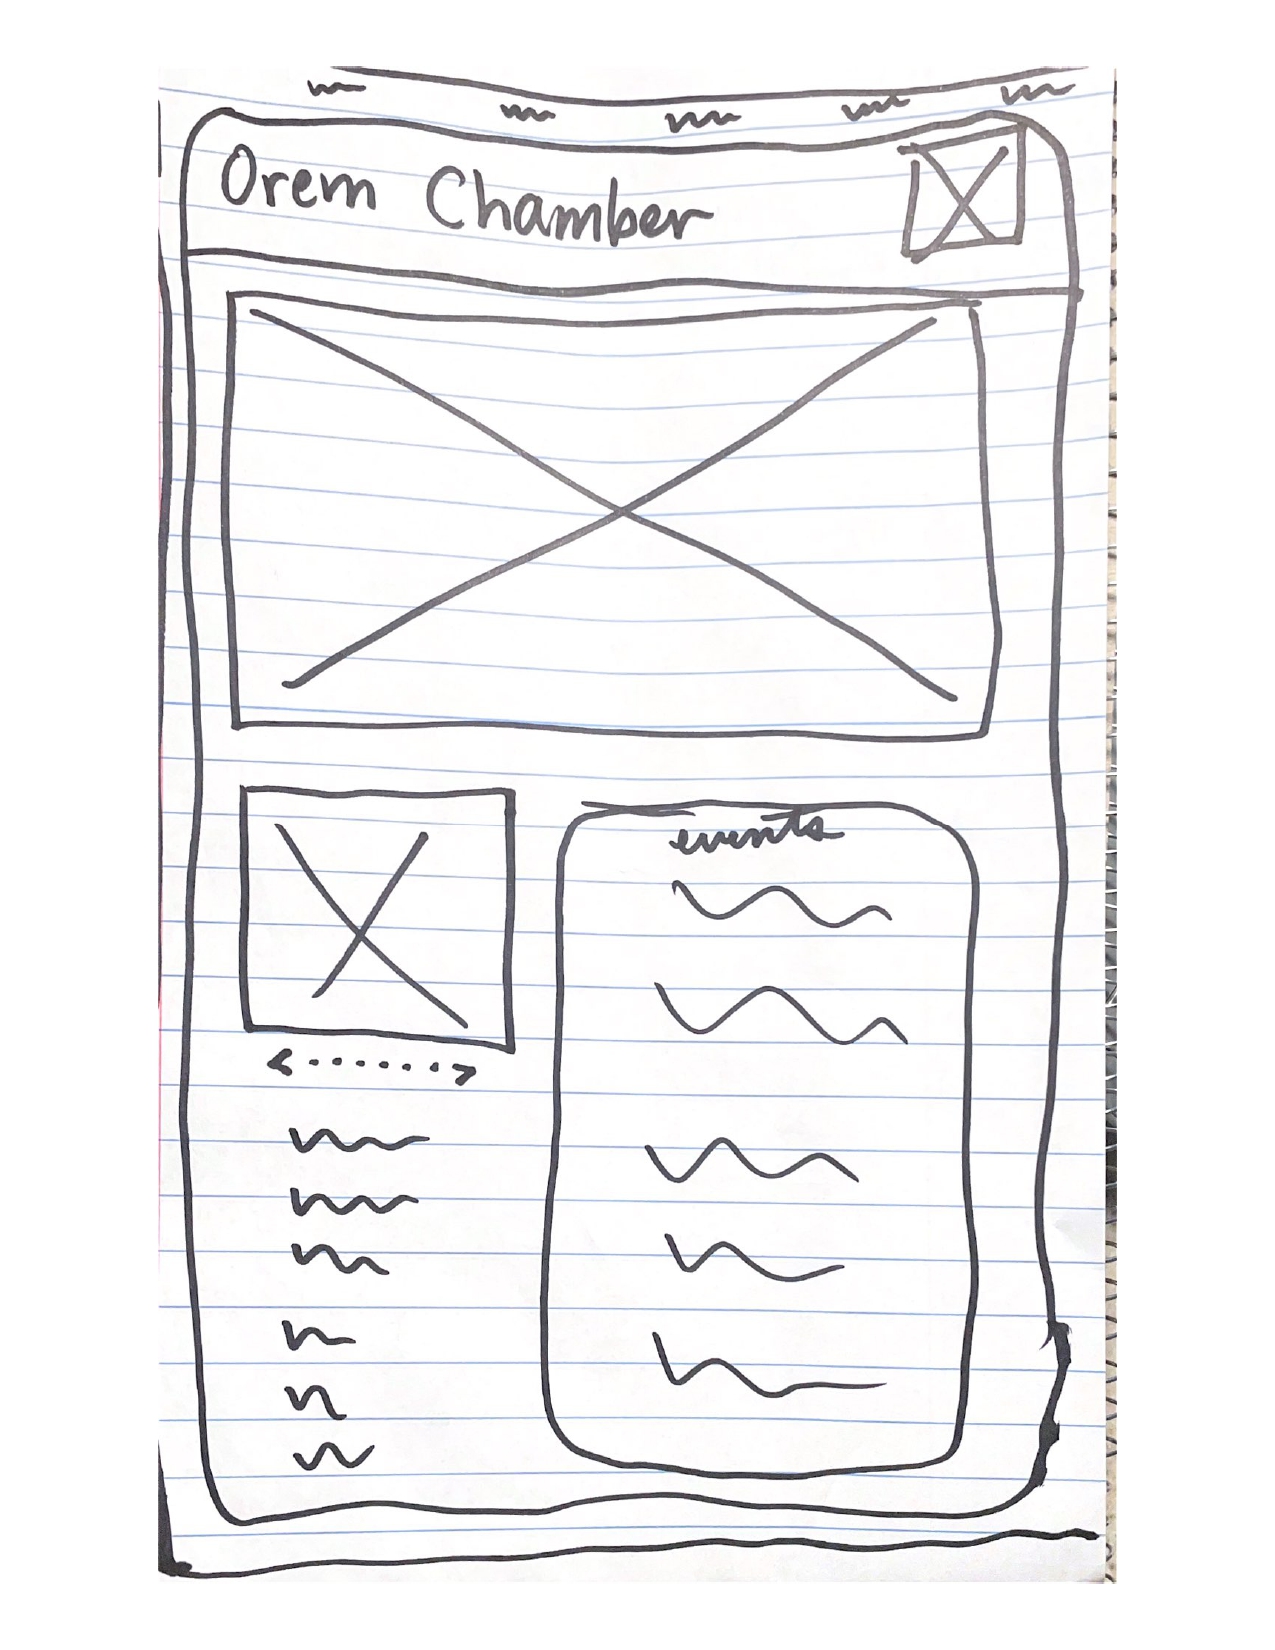 Orem Chamber
events